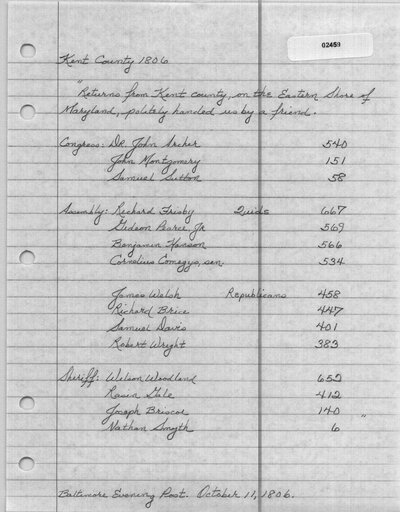 02459
Kent County 1806
"Returns from Kent county, on the Eastern Shore of
Maryland, politely handed us by a friend.
Congress: DR. John Archer 540
John Montgomery 151
Samuel Sutton 58
Assembly: Richard Frisby Quids 667
Gideon Pearce, Jr 569
Benjamin Hanson 566
Cornelius Comegys, sen. 534
James Welsh Republicans 458
Richard Brice 447
Samuel Davis 401
Robert Wright 383
Sheriff: Wilson Woodland 652
Rasin Gale 412
Joseph Briscoe 140
Nathan Smyth 6 "
Baltimore Evening Post. October 11, 1806.